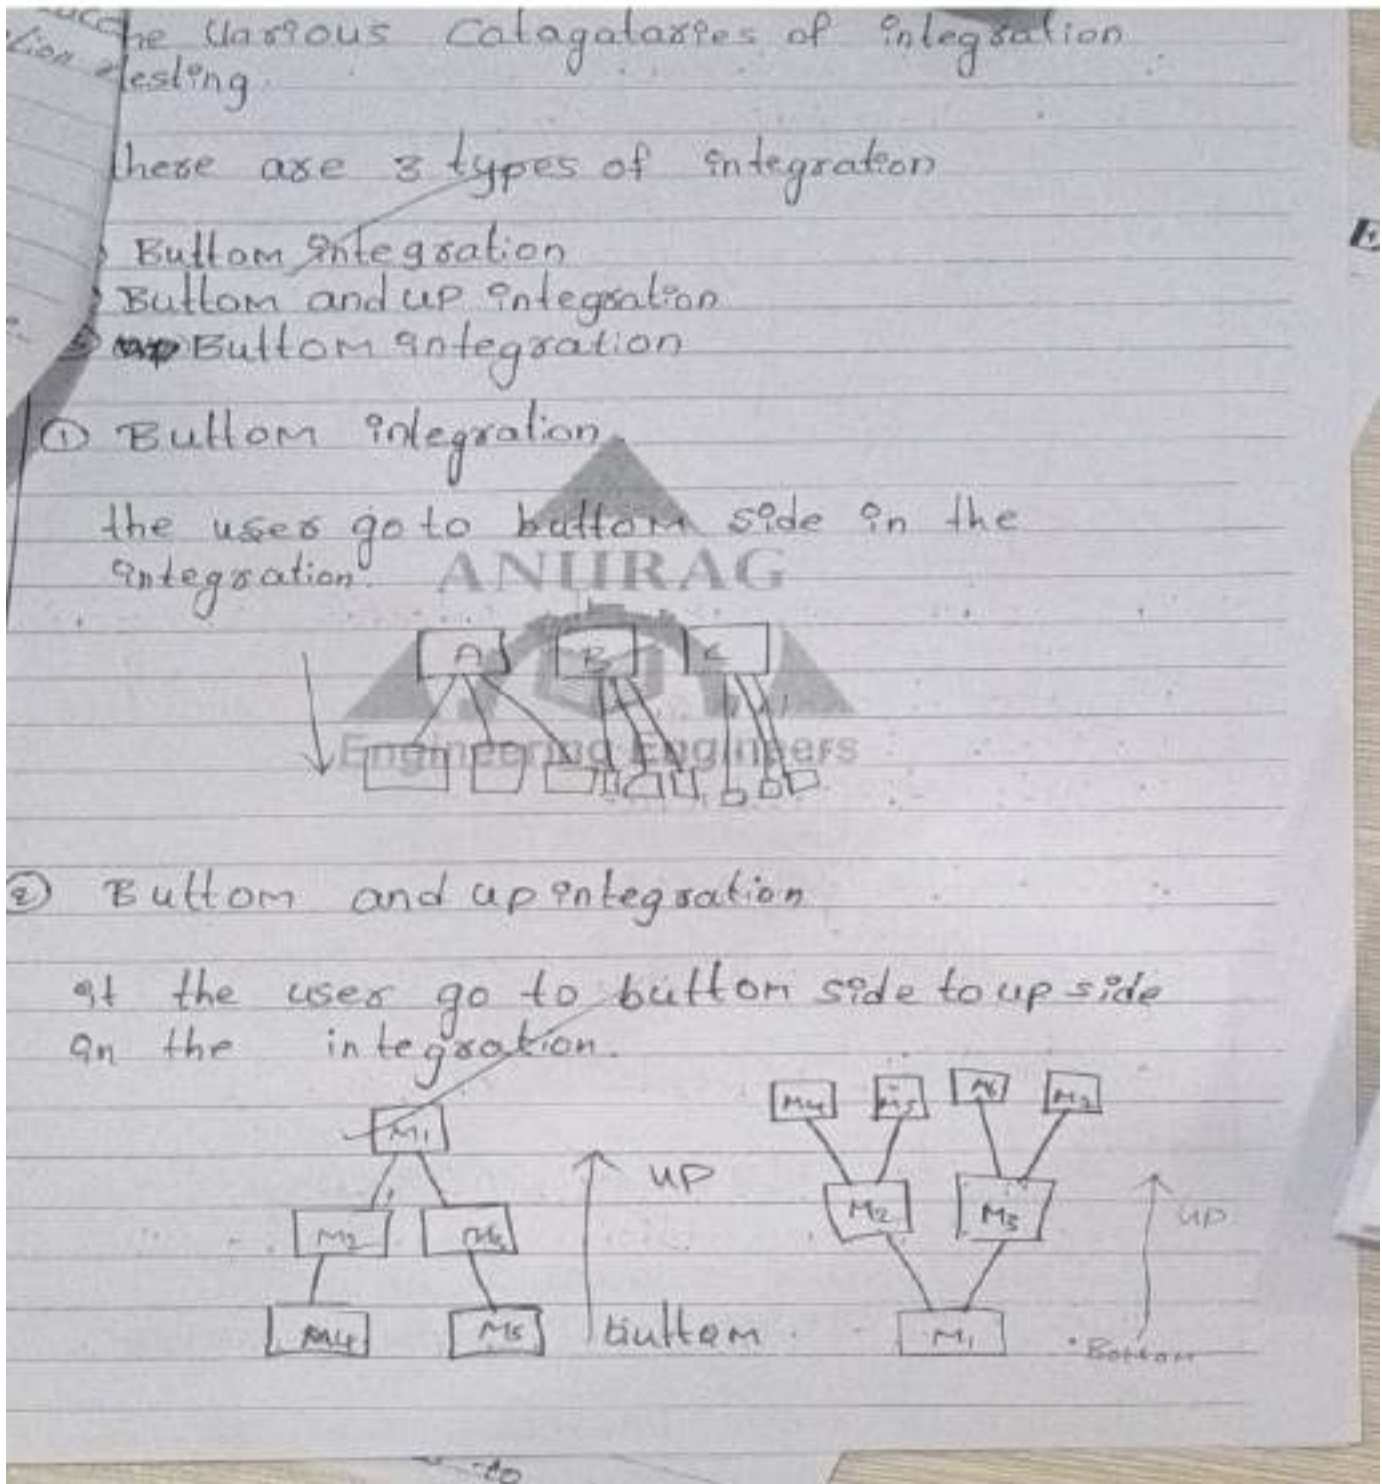 he various Catagataries of integration
testing.
there are 3 types of integration
Buttom integration
Buttom and up integration
Buttom integration
① Buttom integration
the user go to buttom side in the
integration.
ANURAG
A B C
Engineering Engineers
② Buttom and up integration
at the user go to buttom side to up side
in the integration.
M4 M5 M6 M7
M1
up
M2 M3 up
M2
M4 M5 buttom M1 Bottom
to